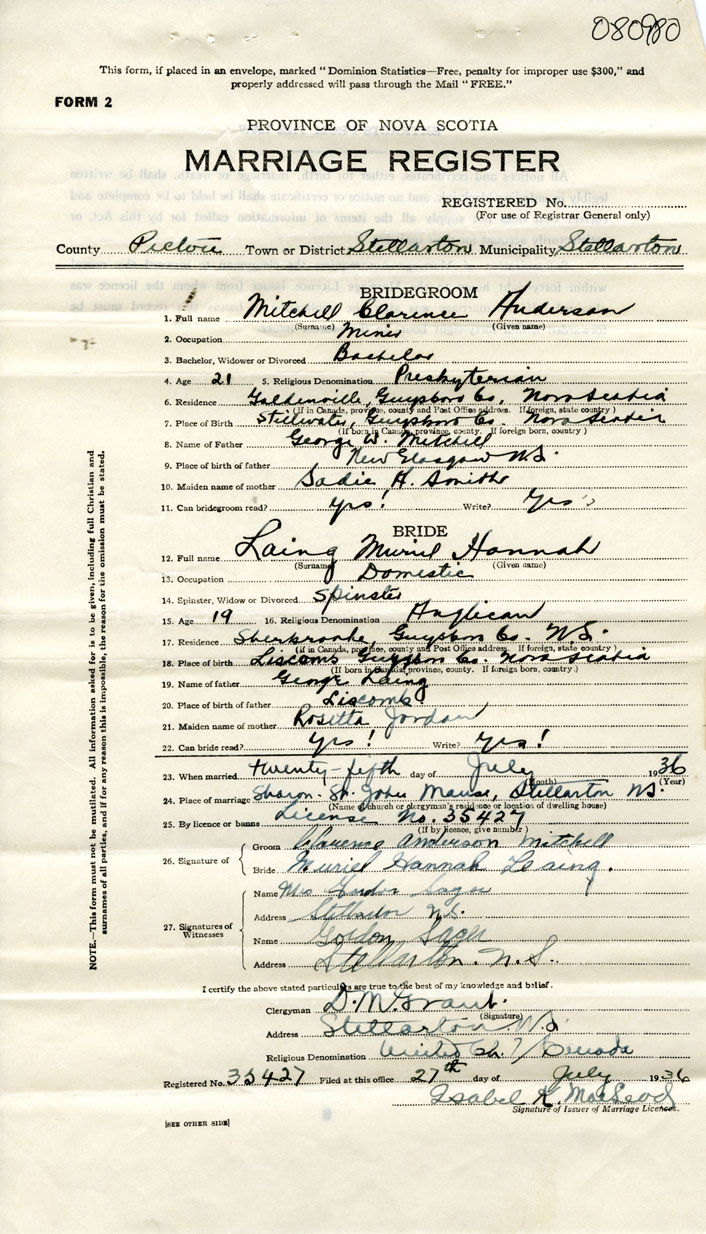 080980
This form, if placed in an envelope, marked "Dominion Statistics—Free, penalty for improper use $300," and
properly addressed will pass through the Mail "FREE."
FORM 2
PROVINCE OF NOVA SCOTIA
MARRIAGE REGISTER
REGISTERED No.
(For use of Registrar General only)
County Pictou Town or District Stellarton Municipality Stellarton
BRIDEGROOM
1. Full name Mitchell Clarence Anderson
(Surname) (Given name)
2. Occupation Miner
3. Bachelor, Widower or Divorced Bachelor
4. Age 21 5. Religious Denomination Presbyterian
6. Residence Goldenville, Guysboro Co. Nova Scotia
(If in Canada, province, county and Post Office address. If foreign, state country)
7. Place of Birth Stillwater, Guysboro Co. Nova Scotia
(If born in Canada, province, county. If foreign born, country)
8. Name of Father George W. Mitchell
9. Place of birth of father New Glasgow N.S.
10. Maiden name of mother Sadie H. Smith
11. Can bridegroom read? Yes! Write? Yes
BRIDE
12. Full name Laing Muriel Hannah
(Surname) (Given name)
13. Occupation Domestic
14. Spinster, Widow or Divorced Spinster
15. Age 19 16. Religious Denomination Anglican
17. Residence Sherbrooke, Guysboro Co. N.S.
(If in Canada, province, county and Post Office address. If foreign, state country)
18. Place of birth Liscomb Guysboro Co. Nova Scotia
(If born in Canada, province, county. If foreign born, country.)
19. Name of father George Laing
20. Place of birth of father Liscomb
21. Maiden name of mother Rosetta Jordan
22. Can bride read? Yes! Write? Yes!
23. When married twenty-fifth day of July 1936
(Month) (Year)
24. Place of marriage Sharon-St. John Manse, Stellarton N.S.
(Name of church or clergyman's residence or location of dwelling house)
25. By licence or banns License No. 35427
(If by licence, give number)
26. Signature of
Groom Clarence Anderson Mitchell
Bride Muriel Hannah Laing.
27. Signatures of Witnesses
Name Mrs Gordon
Address Stellarton N.S.
Name Gordon
Address Stellarton. N.S.
I certify the above stated particulars are true to the best of my knowledge and belief.
Clergyman D. M. Grant.
(Signature)
Address Stellarton N.S.
Religious Denomination United Ch. of Canada
Registered No. 35427 Filed at this office 27th day of July 1936
Isabel K. MacLeod
Signature of Issuer of Marriage Licences.
[SEE OTHER SIDE]
NOTE.—This form must not be mutilated. All information asked for is to be given, including full Christian and
surnames of all parties, and if for any reason this is impossible, the reason for the omission must be stated.